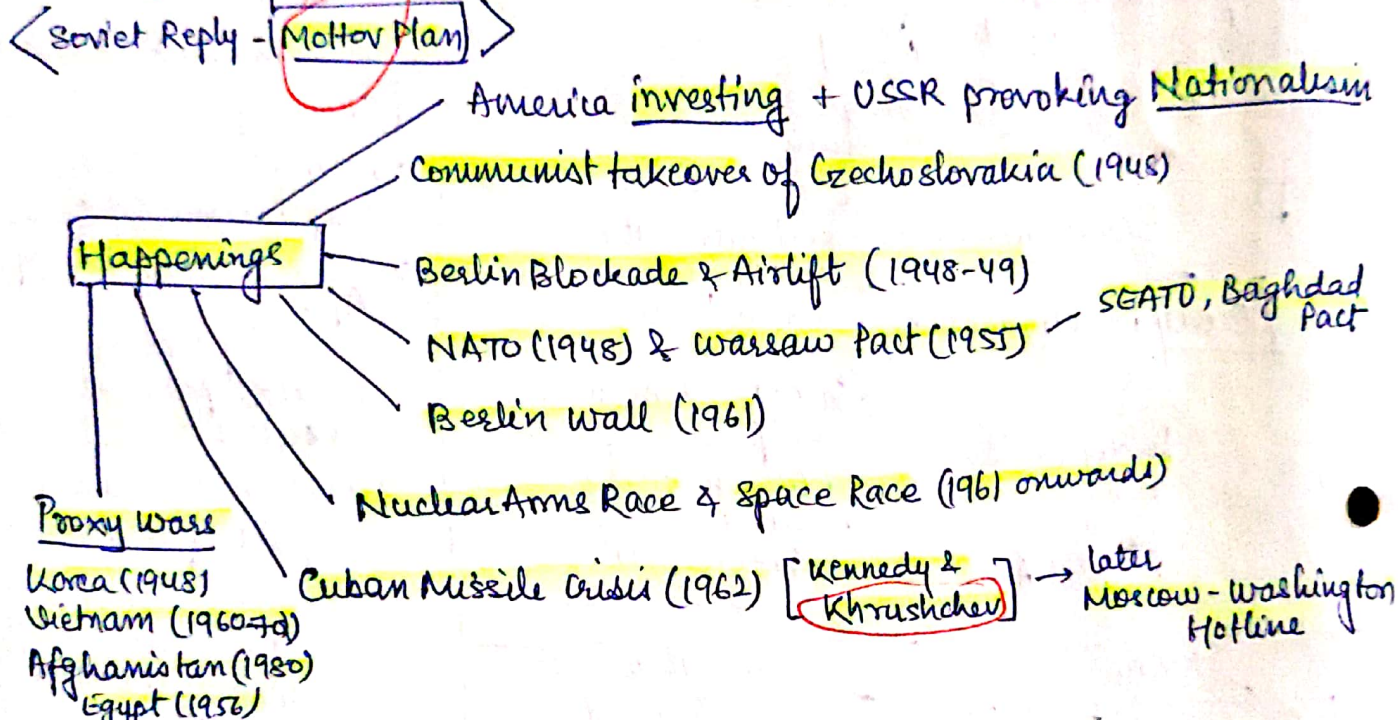 <Soviet Reply - (Moltov Plan)>
America investing + USSR provoking Nationalism
Communist takeover of Czechoslovakia (1948)
Happenings
Berlin Blockade & Airlift (1948-49)
NATO (1948) & Warsaw Pact (1955)
SEATO, Baghdad
Pact
Berlin Wall (1961)
Nuclear Arms Race & Space Race (1961 onwards)
Cuban Missile Crisis (1962) [Kennedy &
Khrushchev] → later
Moscow - Washington
Hotline
Proxy Wars
Korea (1948)
Vietnam (1960-70)
Afghanistan (1980)
Egypt (1956)